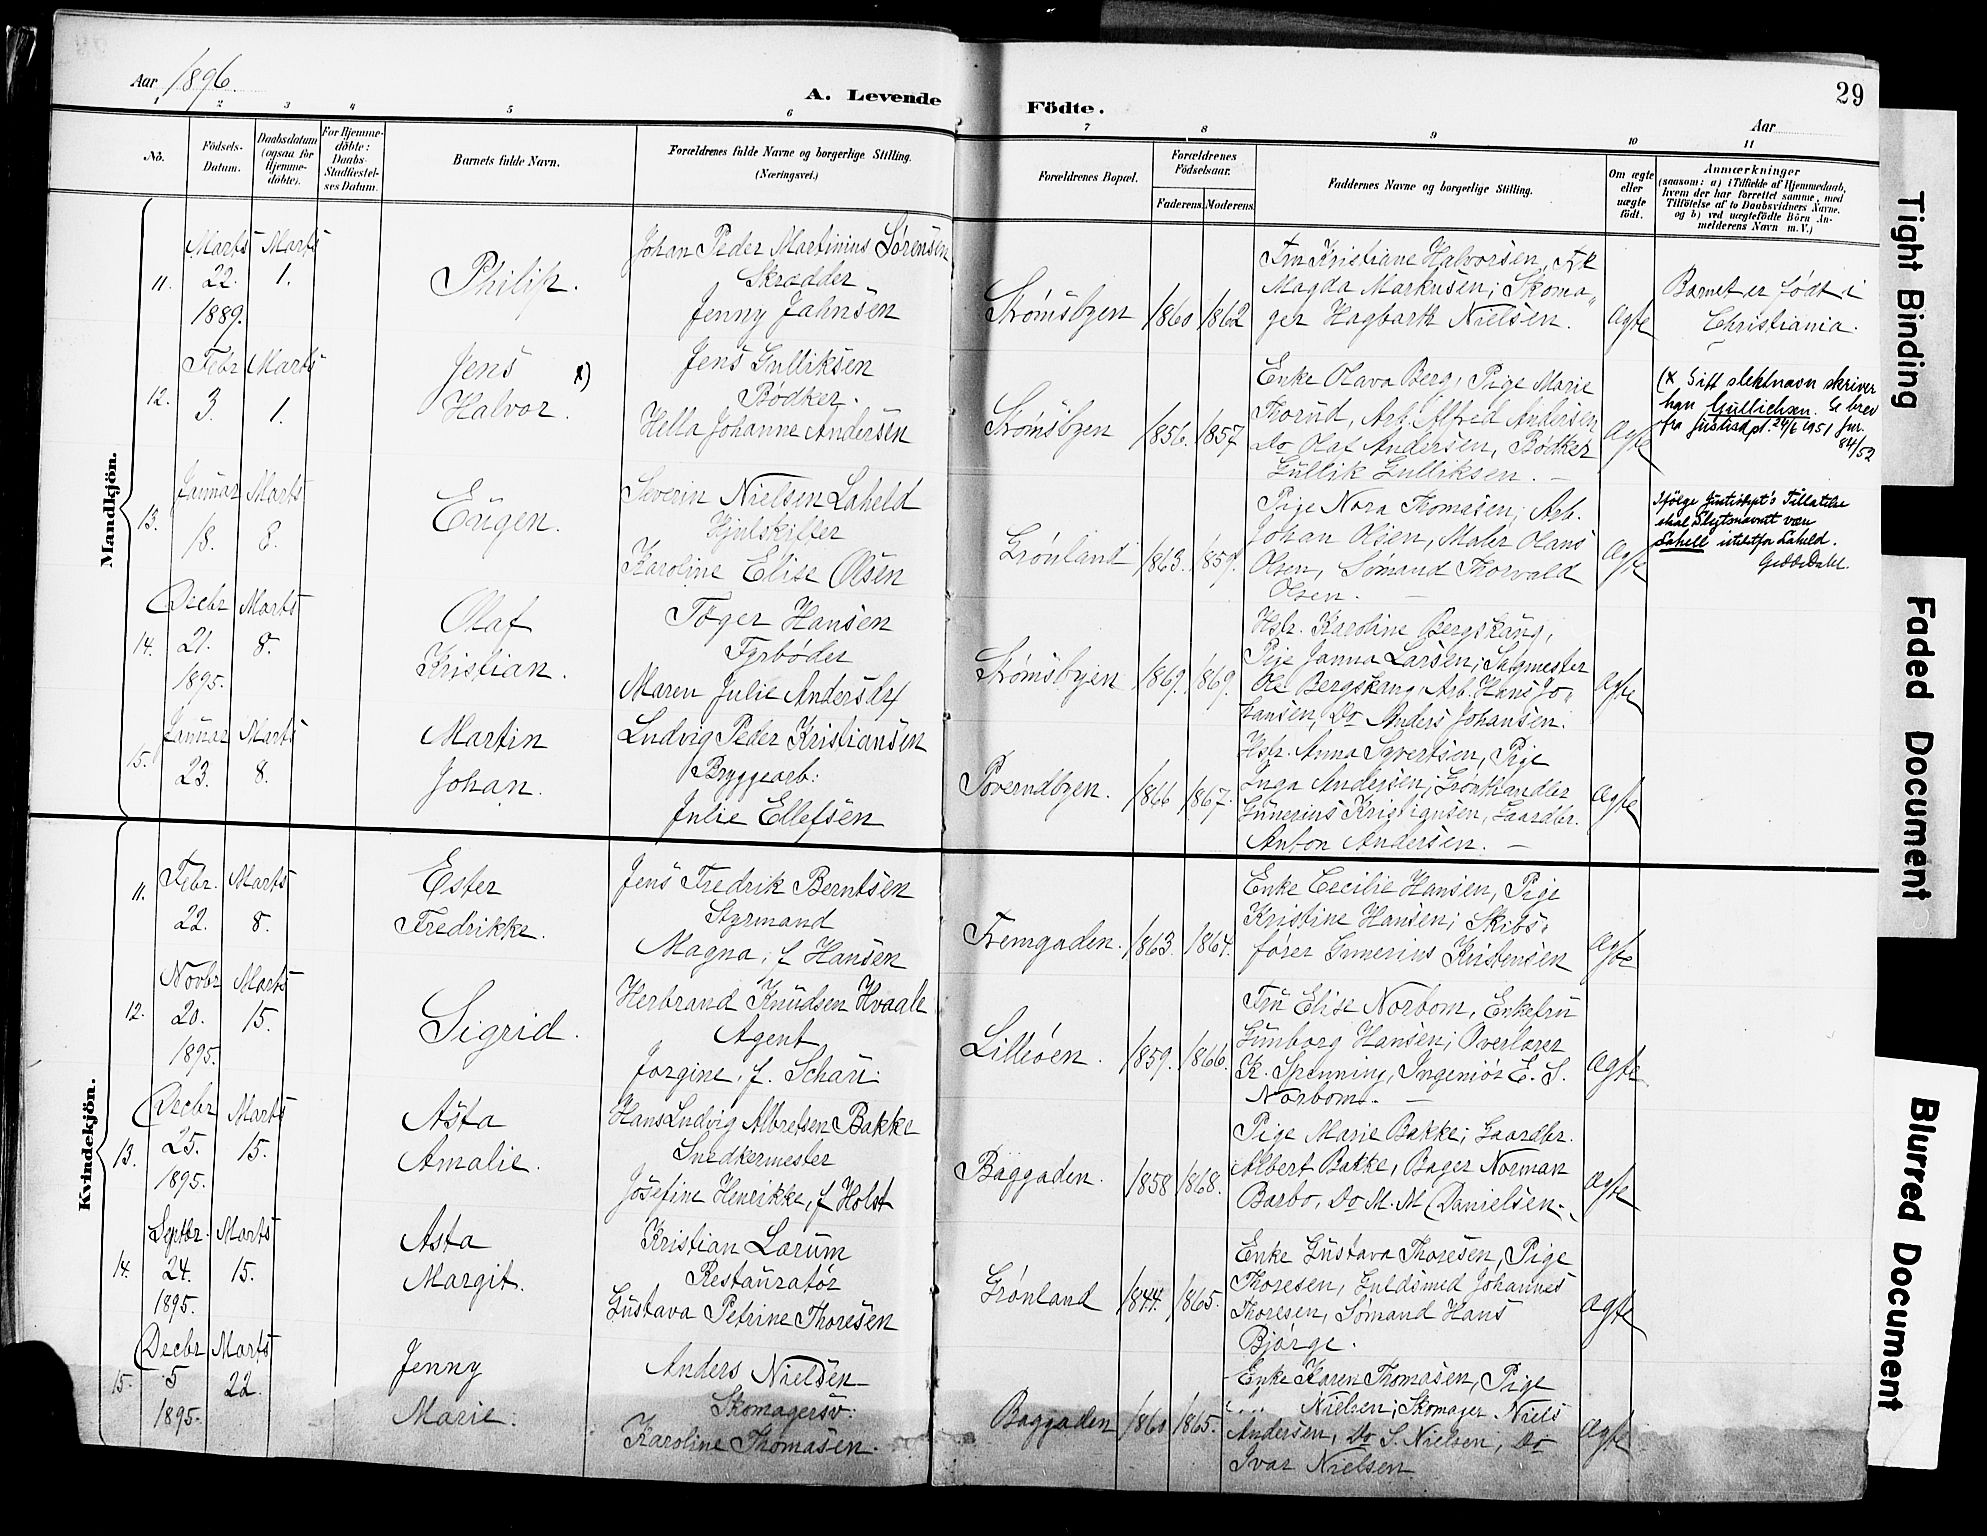 Aar 1896.
A. Levende Födte.
29
Aar
1 2 3 4 5 6 7 8 9 10 11
No.
Födsels-
Datum.
Daabsdatum
(ogsaa for
Hjemme-
döbte).
For Hjemme-
döbte:
Daabs-
Stadfæstel-
ses Datum.
Barnets fulde Navn.
Forældrenes fulde Navne og borgerlige Stilling.
(Næringsvei.)
Forældrenes Bopæl.
Forældrenes
Födselsaar.
Faderens. Moderens.
Faddernes Navne og borgerlige Stilling.
Om ægte
eller
uægte
født.
Anmærkninger
(saasom: a) i Tilfælde af Hjemmedaab,
hvem der har forrettet samme, med
Tilföielse af to Daabsvidners Navne.
og b) ved uægtefödte Börn An-
melderens Navn m.V.)
Mandkjön.
11.
Marts
22.
1889.
Marts
1.
Philip.
Johan Peder Martinius Sørensen
Skrædder
Jenny Jahnsen
Strømsbyen
1860
1862
Fru Kristiane Halvorsen, Frk
Magda Markusen; Skoma-
ger Hagbart Nielsen.
Ægte
Barnet er født i
Christiania.
12.
Febr
3.
Marts
1.
Jens x)
Halvor.
Jens Gulliksen
Bødker.
Hella Johanne Andersen
Strømsbyen
1856.
1857
Enke Olava Berg, Pige Marie
Thorud, Arb. Alfred Andersen,
Do Olaf Andersen, Bødker
Gullik Gulliksen. —
Ægte
(x Sitt slektnavn skriver
han Gullichsen. Se brev
fra Justisdpt. 24/6 1951 Jnr.
84/52
13.
Januar
18.
Marts
8.
Eugen.
Severin Nielsen Laheld
Hjulskifter
Karoline Elise Olsen
Grønland
1863.
1859.
Pige Nora Thomasen; Arb.
Johan Olsen, Maler Olaus
Olsen, Sømand Thorvald
Olsen. —
Ægte
Ifølge Justisdpt's Tillatelse
skal Slegtsnavnet være
Lahell istetfor Laheld.
14.
Decbr
21.
1895.
Marts
8.
Olaf
Kristian.
Tøger Hansen
Fyrbøder
Maren Julie Andersdtr
Strømsbyen
1869.
1869.
Hstr. Karoline Bergskaug,
Pige Janna Larsen; Sagmester
Ole Bergskaug, Arb. Hans Jo-
hansen, Do Anders Johansen.
Ægte
15.
Januar
23.
Marts
8.
Martin
Johan.
Ludvig Peder Kristiansen
Bryggearb:
Julie Ellefsen
Poverudbyen.
1866
1867.
Hstr. Anna Syvertsen, Pige
Inga Andersen; Grønthandler
Gunerius Kristiansen, Gaardbr.
Anton Andersen. —
Ægte
Kvindekjön.
11.
Febr.
22.
Marts
8.
Ester
Fredrikke.
Jens Fredrik Berntsen
Styrmand
Magna, f Hansen
Fremgaden.
1863.
1864.
Enke Cecilie Hansen, Pige
Kristine Hansen; Skibs-
fører Gunerius Kristensen
Ægte
12.
Novbr
20.
1895.
Marts
15.
Sigrid.
Herbrand Knudsen Hvaale
Agent
Jørgine, f. Schau.
Lilleøen.
1859.
1866.
Fru Elise Norbom, Enkefru
Gunborg Hansen; Overlærer
K. Spenning, Ingeniør E. S.
Norbom. —
Ægte
13.
Decbr
25.
1895.
Marts
15.
Asta
Amalie.
Hans Ludvig Albretsen Bakke
Snedkermester
Josefine Henrikke, f Holst
Baggaden.
1858
1868.
Pige Marie Bakke; Gaardbr.
Albert Bakke, Bager Norman
Barbo, Do M. M Danielsen.
Ægte
14.
Septbr.
24.
1895.
Marts
15.
Asta
Margit.
Kristian Lorum
Restauratør
Gustava Petrine Thoresen
Grønland
1844.
1865.
Enke Gustava Thoresen, Pige
Thoresen, Guldsmed Johannes
Thoresen, Sømand Hans
Bjørge.
Ægte
15.
Decbr
5
1895.
Marts
22.
Jenny
Marie.
Anders Nielsen
Skomagersv.
Karoline Thomasen.
Baggaden
1860
1865.
Enke Karen Thomasen, Pige
Nielsen; Skomager Niels
Andersen, Do S. Nielsen, Do
Ivar Nielsen
Ægte
Tight Binding
Faded Document
Blurred Document